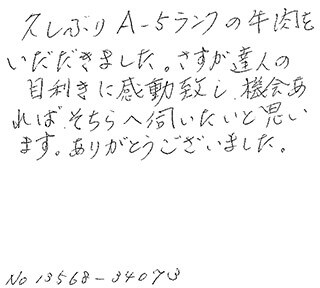 久しぶりA-5ランクの牛肉を
いただきました。さすが達人の
目利きに感動致し、機会あ
ればそちらへ伺いたいと思い
ます。ありがとうございました。
No 13568-34073